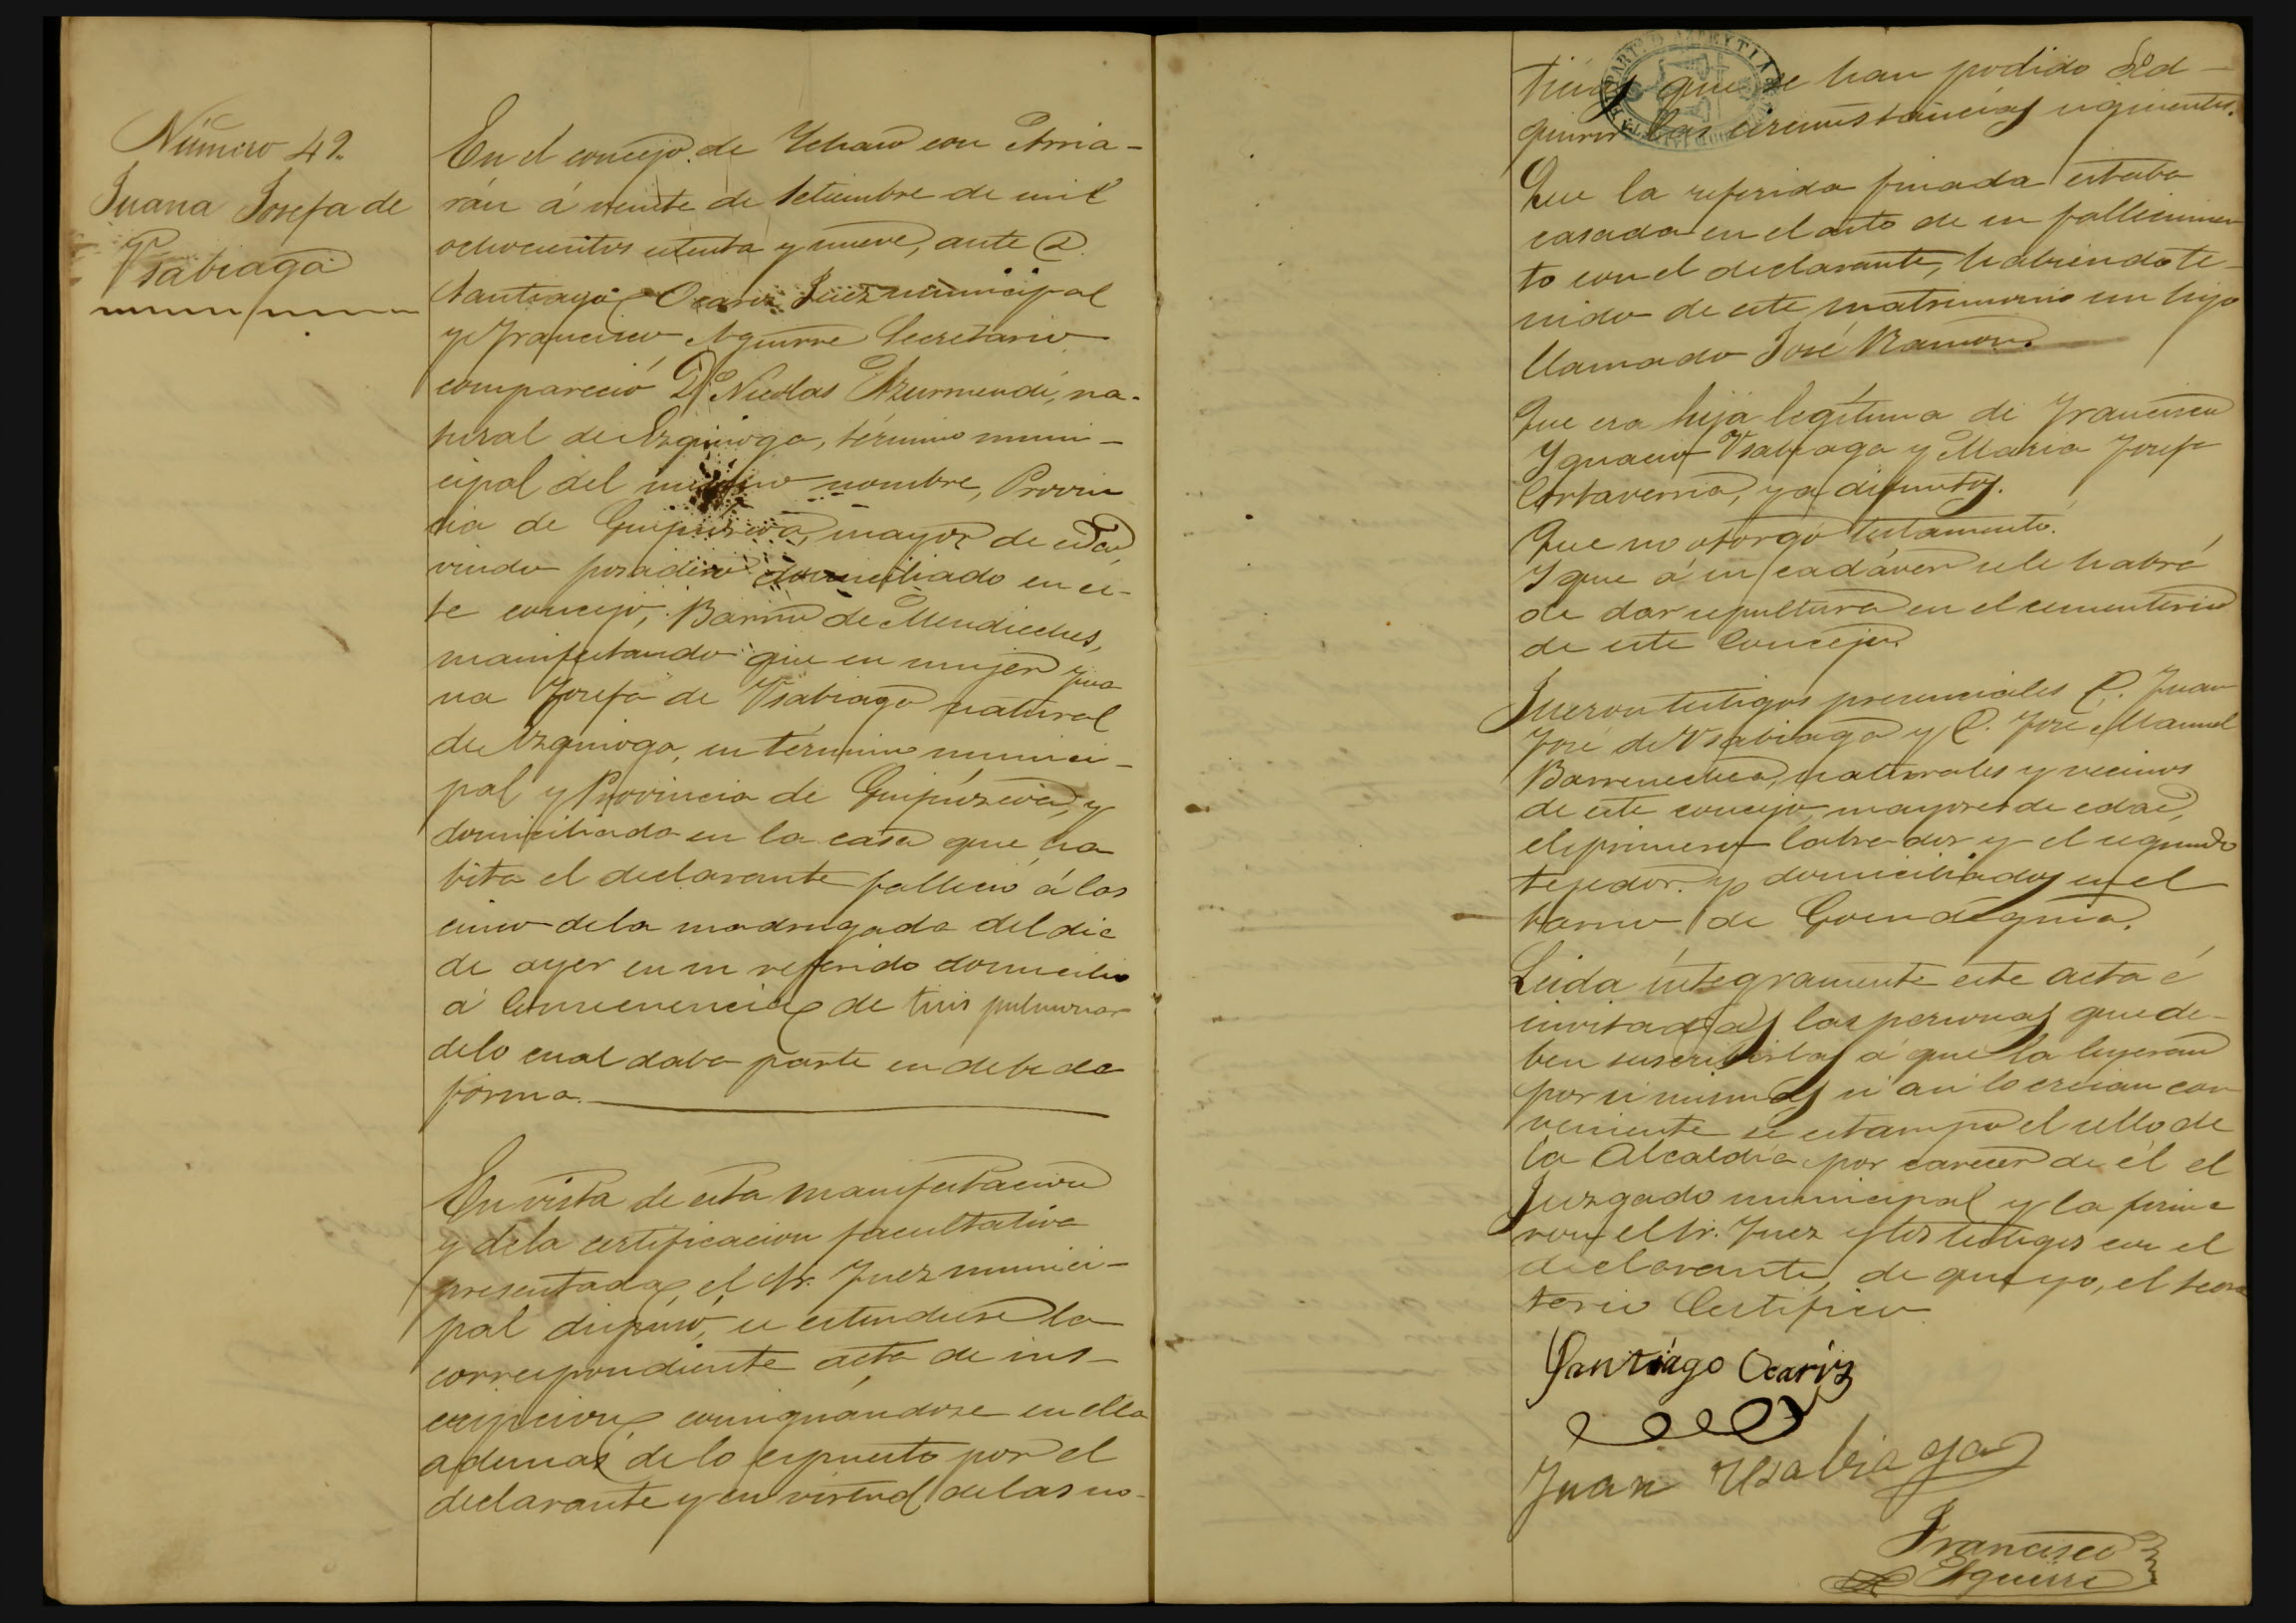 Número 42.
Juana Josefa de
Vsabiaga
En el concejo de Ychaso con Arria-
rán á veinte de Setiembre de mil
ochocientos setenta y nueve, ante D.
Santiago Ocariz Juez municipal
y Francisco Aguirre Secretario
compareció D. Nicolas Azurmendi, na-
tural de Ezquioga, término muni-
cipal del mismo nombre, Provin
cia de Guipúzcoa, mayor de edad
viudo posadero domiciliado en es-
te concejo, Barrio de
manifestando que su mujer Jua
na Josefa de Vsabiaga natural
de Ezquioga, su término munici-
pal y Provincia de Guipúzcoa, y
domiciliada en la casa que ha
bita el declarante falleció á las
cinco de la madrugada del dia
de ayer en su referido domicilio
á Consecuencia de tisis pulmonar
de lo cual daba parte en debida
forma.
En vista de esta manifestacion
y de la certificacion facultativa
presentada, el Sr. Juez munici-
pal dispuso, se estendiese la
correspondiente acta de ins-
cripcion, consignándose en ella
ademas de lo espuesto por el
declarante y en virtud de las no-
ticias que se han podido Ad-
quirir las circunstancias siguientes.
Que la referida finada estaba
casada en el acto de su fallecimien
to con el declarante, habiendo te-
nido de este matrimonio un hijo
llamado José Ramon.
Que era hija legítima de Francisco
Ygnacio Vsabiaga y Maria Josefa
Cortaverria, ya difuntos.
Que no otorgó testamento.
Y que á su cadáver se le habrá
de dar sepultura en el cementerio
de este Concejo.
Fueron testigos presenciales D. Juan
José de Vsabiaga y D. José Manuel
Barrenechea, naturales y vecinos
de este concejo, mayores de edad,
el primero labrador y el segundo
tejedor. y domiciliados en el
barrio de
Leida íntegramente este acta é
invitadas las personas que de-
ben suscribirlas á que la leyeran
por si mismas si asi lo creian con
veniente se estampó el sello de
la Alcaldía por carecer de él el
Juzgado municipal y la firma
ron el Sr. Juez y los testigos con el
declarante, de que yo, el secre
tario Certifico
Santiago Ocariz
Juan Usabiaga
Francisco
Aguirre